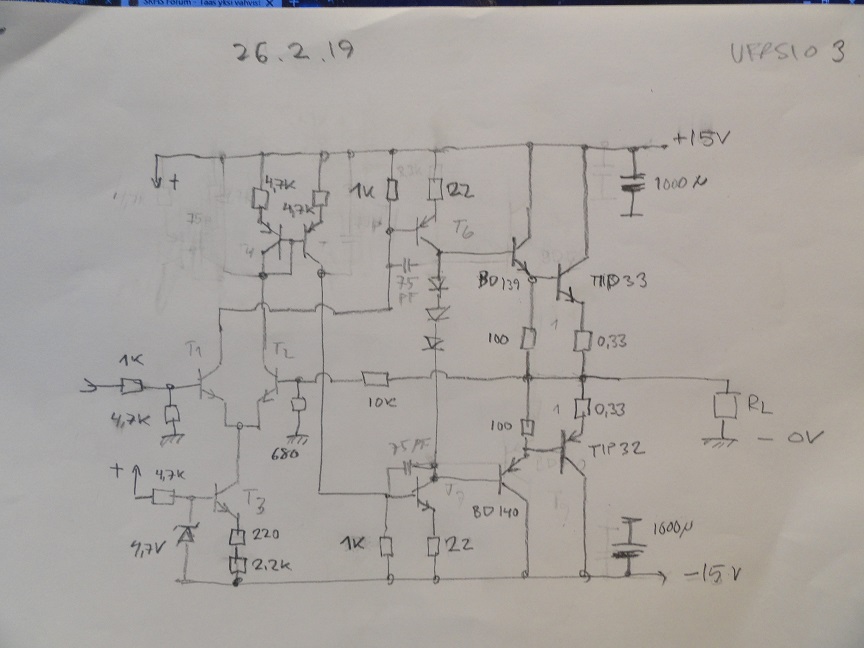 SKHS Forum - Taas yksi vahvis!
26.2.19
VERSIO 3
+15V
+
4,7K
4,7K
1K
22
1000µ
T6
T4
75
PF
BD139
TIP33
100
1
0,33
1K
T1
T2
4,7K
10K
680
100
1
0,33
RL
- 0V
TIP32
75PF
+
4,7K
T3
BD140
4,7V
220
2,2K
1K
22
1000µ
-15V